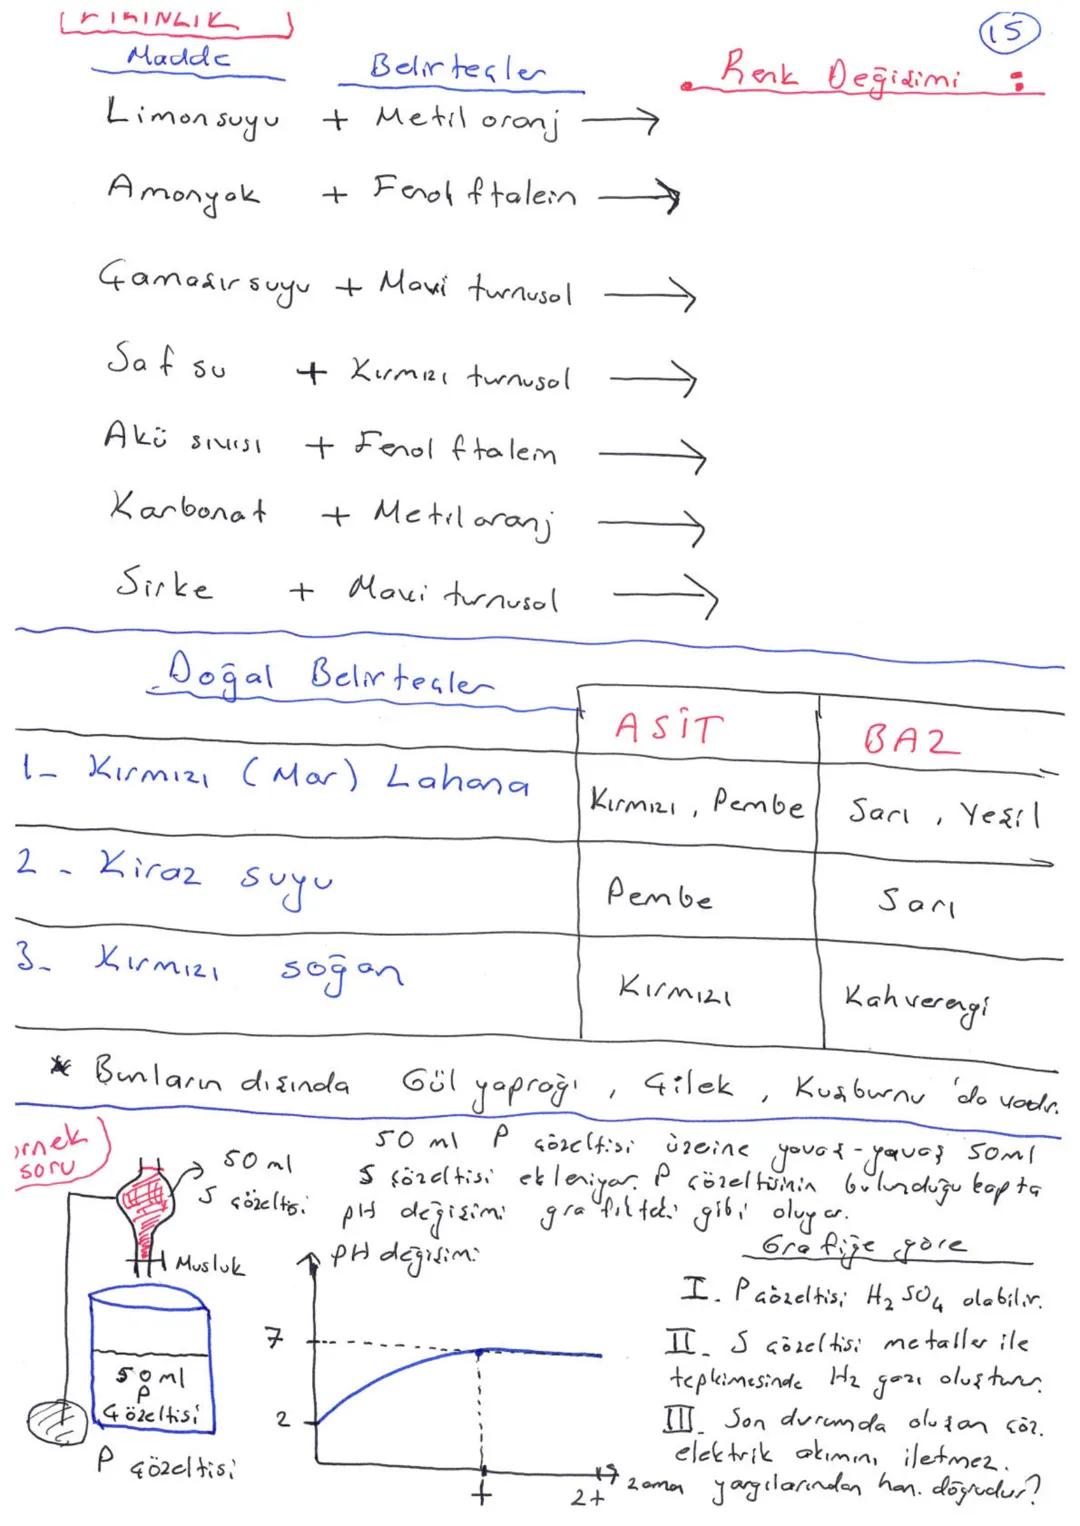 ETKİNLİK
15
Madde Belirteçler Renk Değişimi :
Limonsuyu + Metil oranj →
Amonyak + Fenol ftalein →
Çamaşır suyu + Mavi turnusol →
Saf su + Kırmızı turnusol →
Akü sıvısı + Fenol ftalein →
Karbonat + Metil oranj →
Sirke + Mavi turnusol →
Doğal Belirteçler
ASİT BAZ
1- Kırmızı (Mor) Lahana Kırmızı, Pembe Sarı, Yeşil
2- Kiraz suyu Pembe Sarı
3- Kırmızı soğan Kırmızı Kahverengi
* Bunların dışında Gül yaprağı, Çilek, Kuşburnu 'da vardır.
örnek soru
50 ml P çözeltisi üzeine yavaş-yavaş 50ml
S çözeltisi ekleniyor. P çözeltisinin bulunduğu kapta
pH değişimi grafikteki gibi oluyor.
50 ml
S çözeltisi
Musluk
50 ml
P
Çözeltisi
P çözeltisi
pH değişimi
7
2
t
2t
zaman
Grafiğe göre
I. P çözeltisi H₂SO₄ olabilir.
II. S çözeltisi metaller ile
tepkimesinde H₂ gazı oluşturur.
III. Son durumda oluşan çöz.
elektrik akımını iletmez.
yargılarından han. doğrudur?